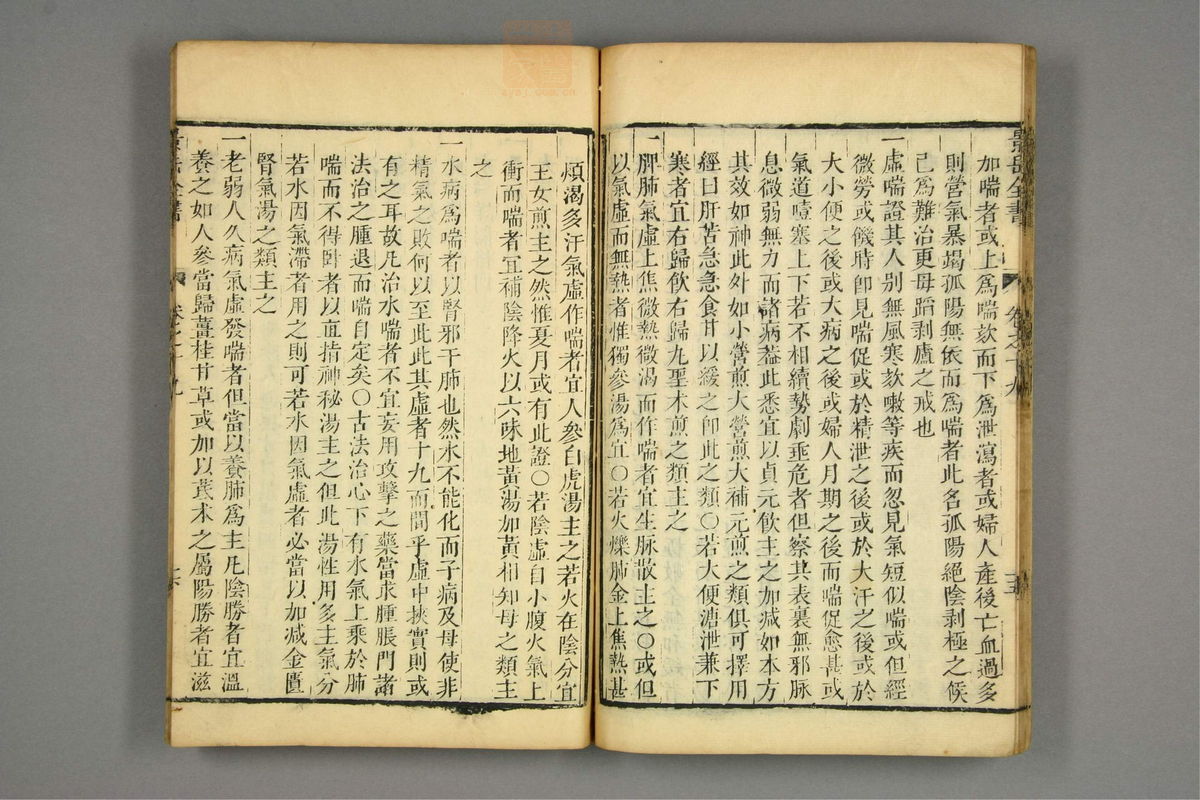 加喘者或上爲喘欬而下爲泄瀉者或婦人產後亡血過多
則營氣暴竭孤陽無依而爲喘者此名孤陽絕陰剥極之候
已爲難治更毋蹈剥廬之戒也
一虛喘證其人别無風寒欬嗽等疾而忽見氣短似喘或但經
微勞或饑時卽見喘促或於精泄之後或於大汗之後或於
大小便之後或大病之後或婦人月期之後而喘促愈甚或
氣道噎塞上下若不相續勢劇垂危者但察其表裏無邪脉
息微弱無力而諸病葢此悉宜以貞元飲主之加減如本方
其效如神此外如小營煎大營煎大補元煎之類俱可擇用
經曰肝苦急急食甘以緩之卽此之類〇若大便溏泄兼下
寒者宜右歸飲右歸九聖术煎之類主之
一脾肺氣虛上焦微熱微渴而作喘者宜生脉散主之〇或但
以氣虛而無熱者惟獨參湯爲宜〇若火爍肺金上焦熱甚
煩渴多汗氣虛作喘者宜人參白虎湯主之若火在陰分宜
玉女煎主之然惟夏月或有此證〇若陰虛自小腹火氣上
衝而喘者宜補陰降火以六味地黃湯加黃相知母之類主
之
一水病爲喘者以腎邪干肺也然水不能化而子病及母使非
精氣之敗何以至此此其虛者十九而間乎虛中挾實則或
有之耳故凡治水喘者不宜妄用攻擊之藥當求腫脹門諸
法治之腫退而喘自定矣〇古法治心下有水氣上乘於肺
喘而不得卧者以直指神秘湯主之但此湯性用多主氣分
若水因氣滯者用之則可若水因氣虛者必當以加減金匱
腎氣湯之類主之
一老弱人久病氣虛發喘者但當以養肺爲主凡陰勝者宜溫
養之如人參當歸薑桂甘草或加以茋术之屬陽勝者宜滋
景岳全書
卷之十九